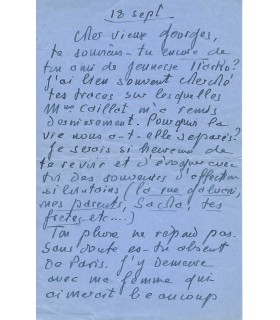 18 sept.
Cher vieux Georges,
te souviens-tu encore de
ton ami de jeunesse
J'ai bien souvent cherché
tes traces sur lesquelles
Mme Caillot m'a remis
dernièrement. Pourquoi la
vie nous a-t-elle séparés?
Je serais si heureux de
te revoir et d'évoquer avec
toi des souvenirs d'affection
si lointains (la rue
mes parents, Sacha, tes
frères etc....)
Ton phone ne répond pas.
Sans doute es-tu absent
de Paris. J'y demeure
avec ma femme qui
aimerait beaucoup